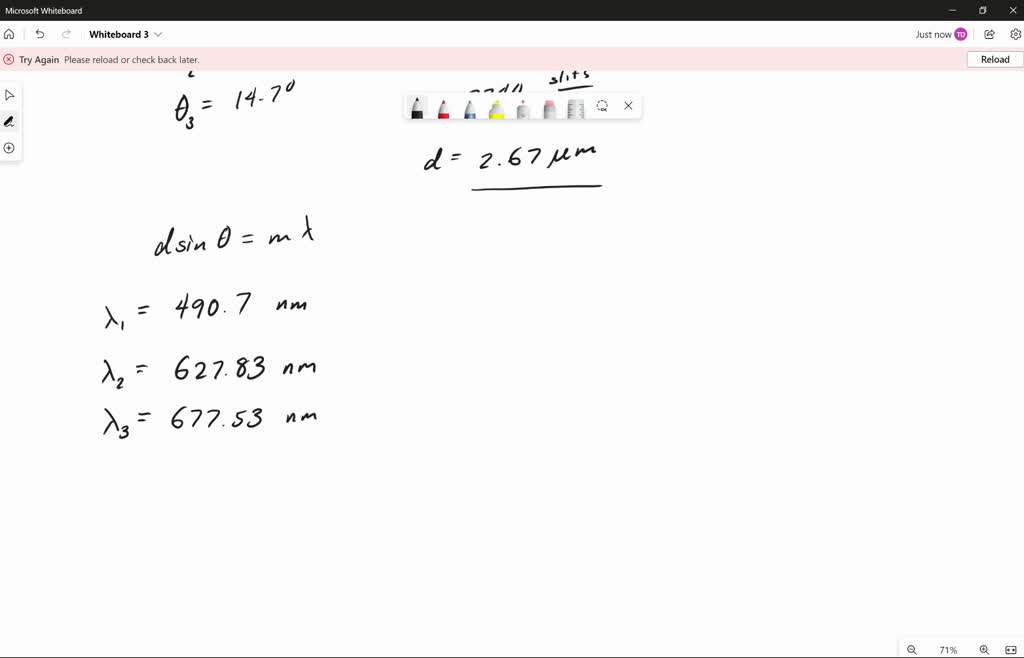 Microsoft Whiteboard
Whiteboard 3
Just now TD
Try Again Please reload or check back later.
Reload
slits
θ₃ = 14.7°
d = 2.67 μm
d sin θ = m λ
λ₁ = 490.7 nm
λ₂ = 627.83 nm
λ₃ = 677.53 nm
71%